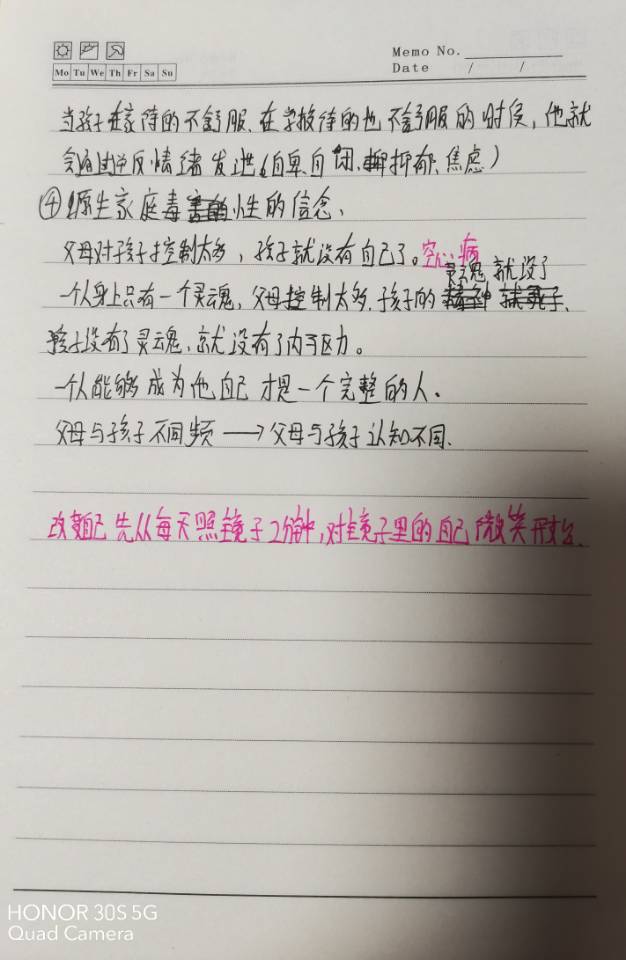 Memo No.
Mo Tu We Th Fr Sa Su
Date / /
当孩子在家待的不舒服.在学校待的也不舒服的时侯,他就
会通过逆反情绪发泄(自卑.自闭.抑郁.焦虑)
④原生家庭毒性的信念、
父母对孩子控制太多,孩子就没有自己了。空心病
灵魂就没了
一个人身上只有一个灵魂,父母控制太多.孩子的
孩子没有了灵魂.就没有了内驱力。
一个人能够成为他自己才是一个完整的人.
父母与孩子不同频→父母与孩子认知不同.
改变自己先从每天照镜子2分钟,对镜子里的自己微笑开始.
HONOR 30S 5G
Quad Camera